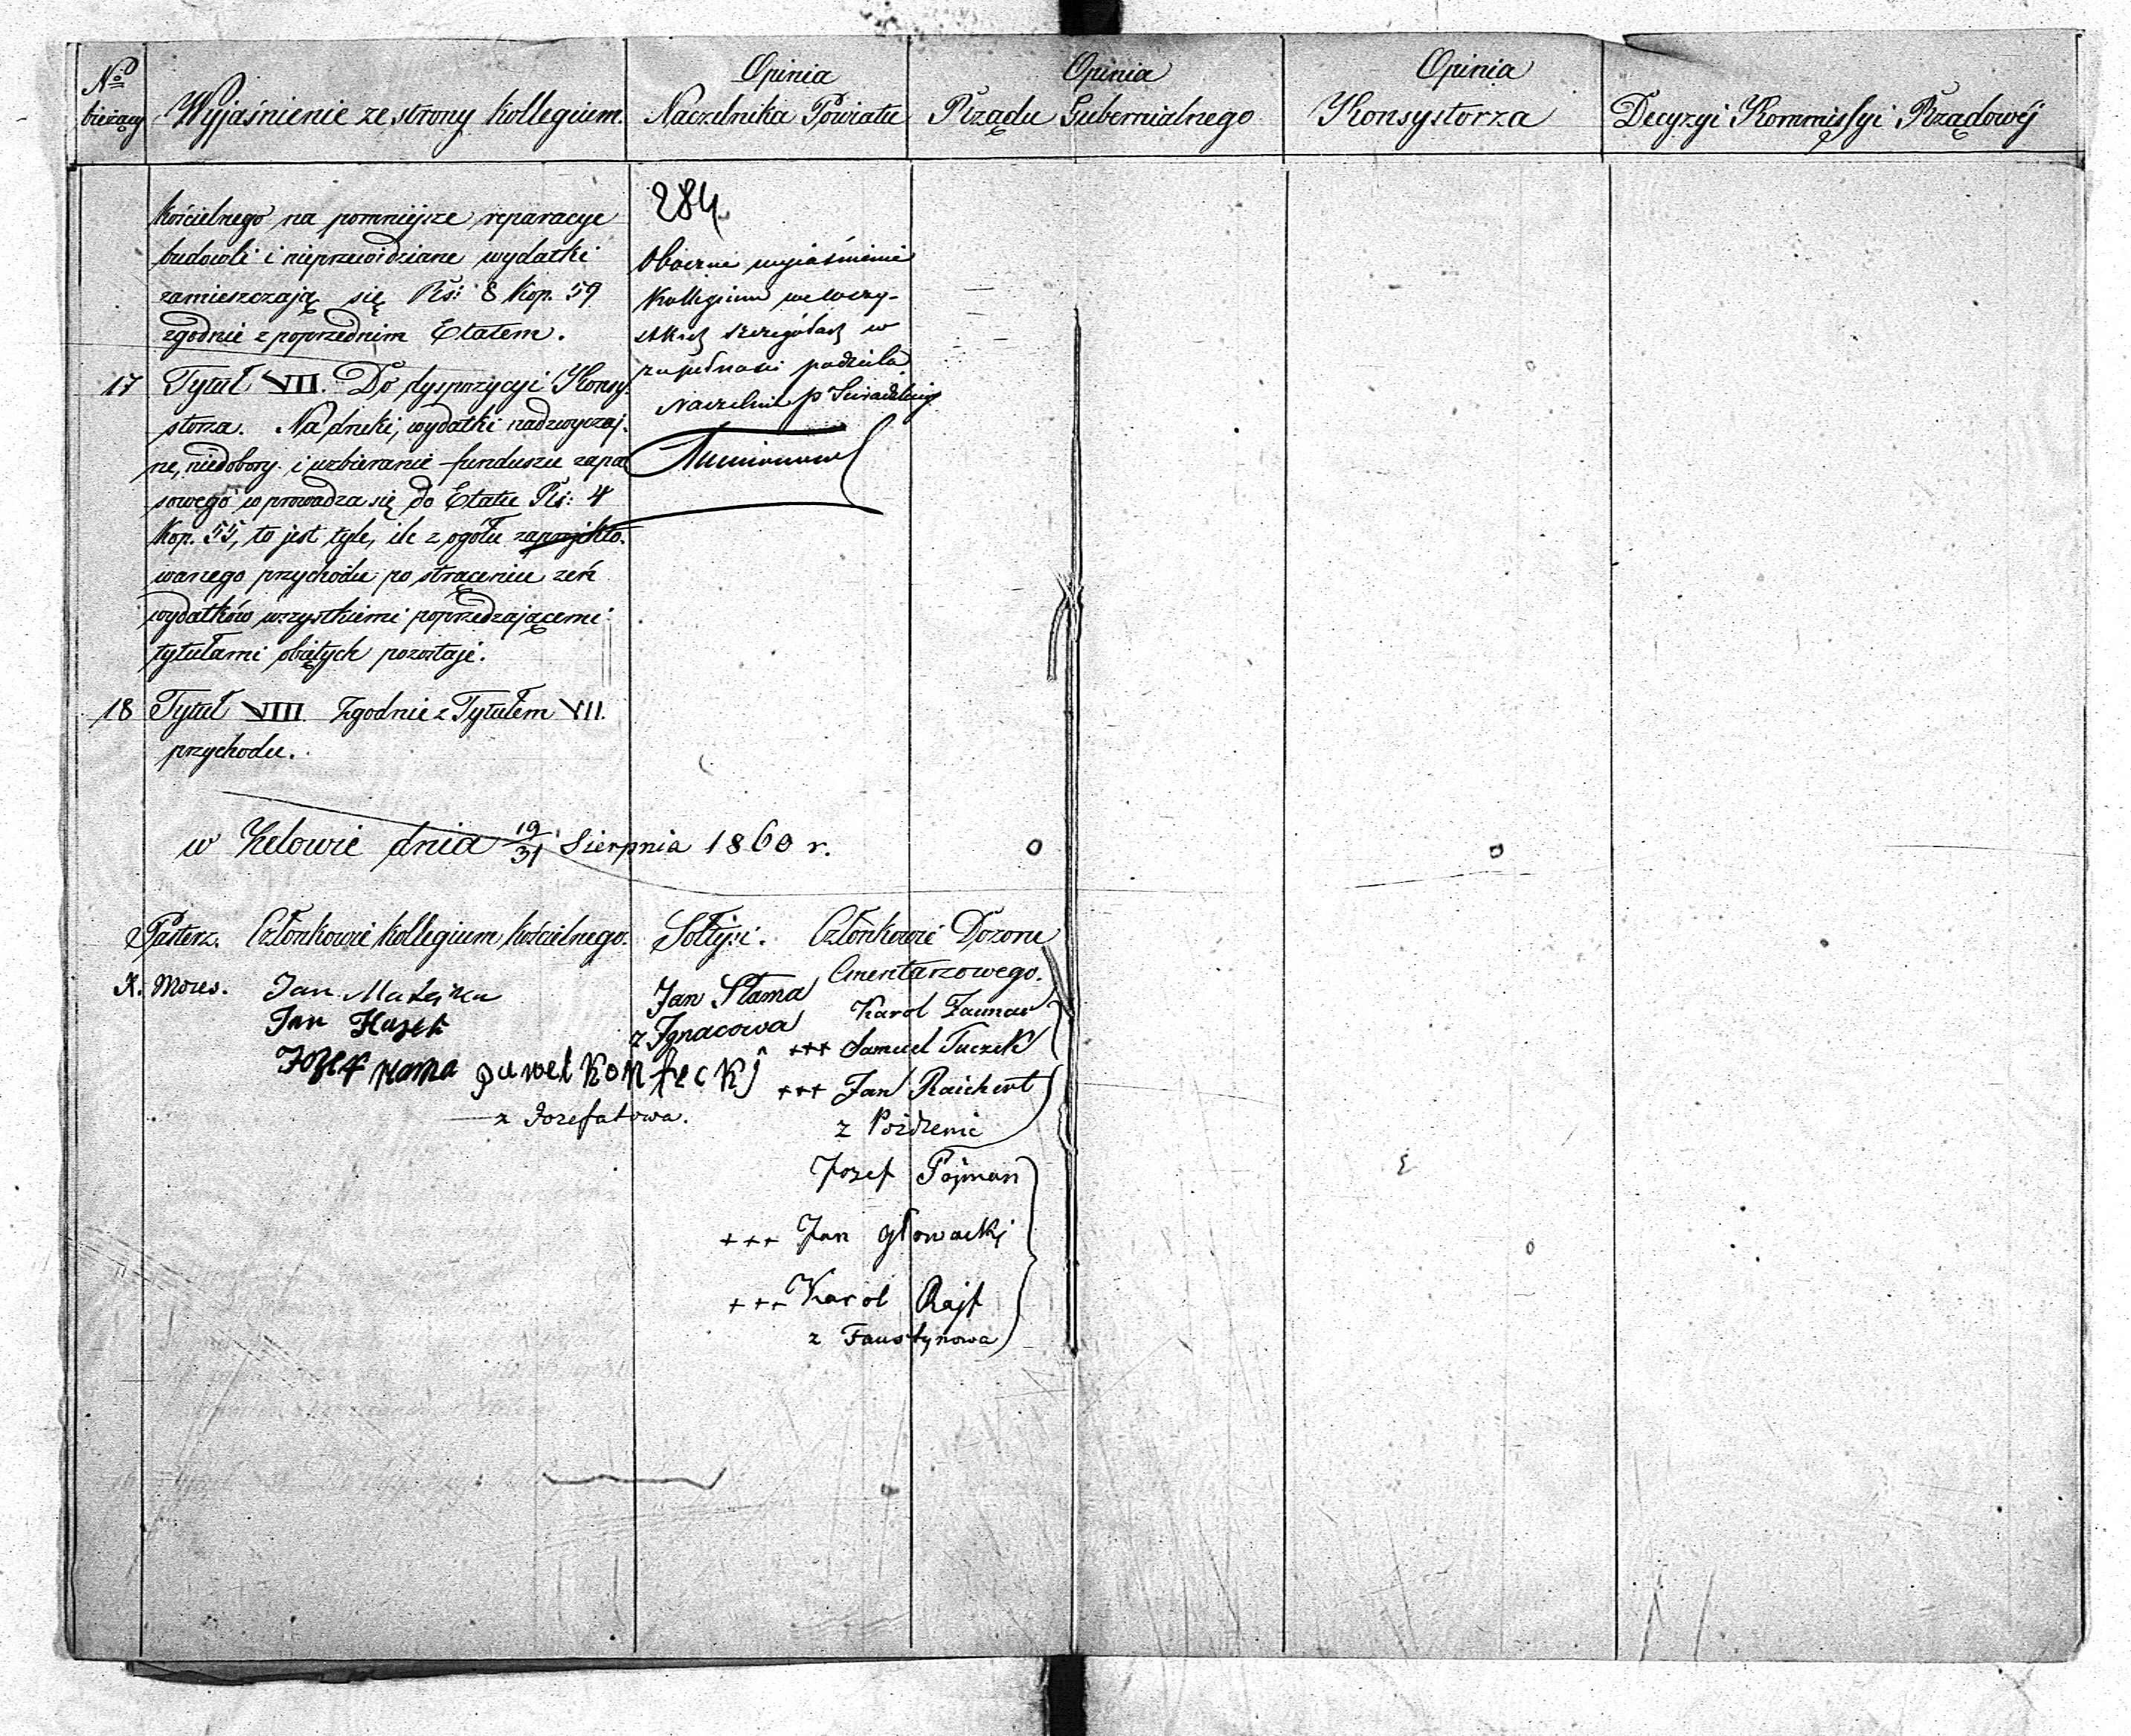 No bieżący
Wyjaśnienie ze strony Kollegium.
Opinia
Naczelnika Powiatu
Opinia
Rządu Gubernialnego
Opinia
Konsystorza
Decyzyi Kommissyi Rządowéj
kościelnego na pomniejsze reparacye
budowli i nieprzewidziane wydatki
zamieszczają się Rs: 8 Kop. 59
zgodnie z poprzednim Etatem.
17 Tytuł VII. Do dyspozycyi Konsy-
storza. Na druki, wydatki nadzwyczaj-
ne, niedobory i uzbieranie funduszu zapa
sowego wprowadza się do Etatu Rs: 4
Kop. 55, to jest tyle, ile z ogółu zaprojekto-
wanego przychodu po strąceniu zeń
wydatków wszystkiemi poprzedzającemi
tytułami objętych pozostaje.
18 Tytuł VIII. Zgodnie z Tytułem VII.
przychodu.
284
Obecne wyjaśnienie
Kollegium we wszy-
stkich szczegółach w
zupełności podziela
Naczelnik P Sieradzkiego
w Zelowie dnia 19/31 Sierpnia 1860 r.
Pasterz. Członkowie Kollegium Kościelnego. Sołtysi. Członkowie Dozoru
Cmentarzowego.
K. Mozes.
Jan Matejka
Jan Hajek
Jozef
pawel
z Jozefatowa.
Jan Słama
z Ignacowa
Karol Zaunar
+++ Samuel Tuczek
+++ Jan Raichert
z Pożdzenic
Jozef Pojman
+++ Jan głowacki
+++ Karol Rajt
z Faustynowa